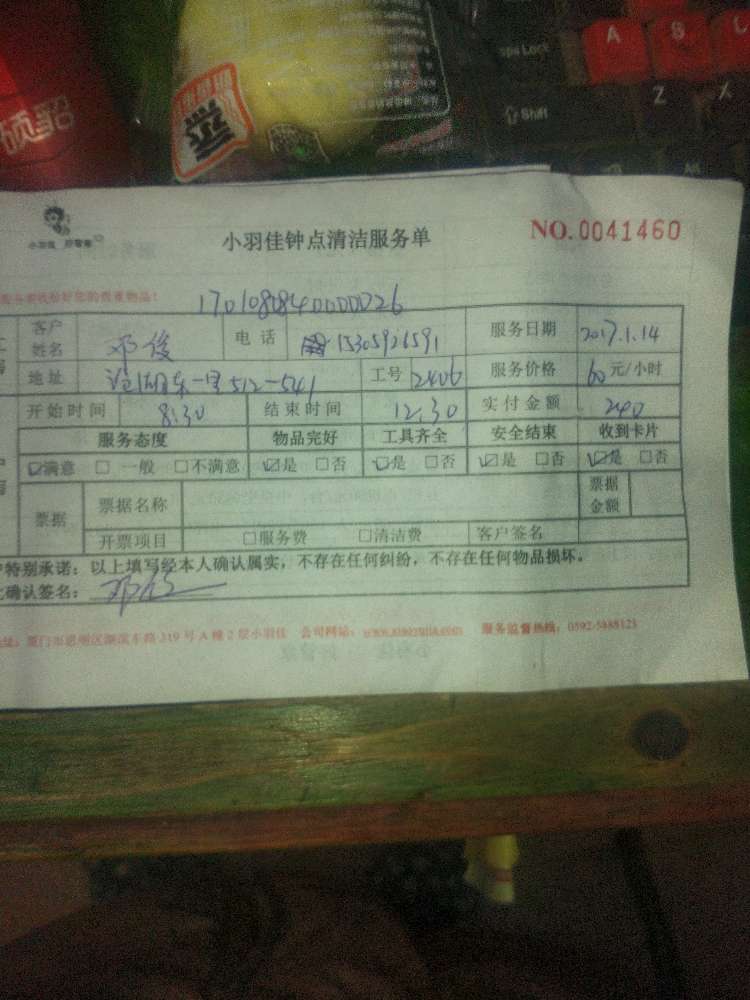 硕韶
Lock
A
S
C
Shift
Z
X
小羽佳 好管家
小羽佳钟点清洁服务单
NO.0041460
1701080840000026
客户姓名 邓俊 电话 15305926591 服务日期 2017.1.14
地址 512-541 工号 2406 服务价格 60元/小时
开始时间 8:30 结束时间 12:30 实付金额 240
服务态度 物品完好 工具齐全 安全结束 收到卡片
☑满意 □一般 □不满意 ☑是 □否 ☑是 □否 ☑是 □否 ☑是 □否
票据 票据名称 票据金额
开票项目 □服务费 □清洁费 客户签名
特别承诺：以上填写经本人确认属实，不存在任何纠纷，不存在任何物品损坏。
确认签名：邓俊
厦门市思明区湖滨东路319号A幢2层小羽佳 公司网站： 服务监督热线：0592-5888123